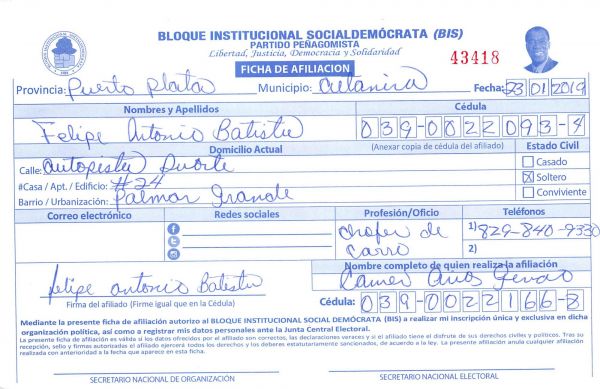 BLOQUE INSTITUCIONAL SOCIALDEMÓCRATA (BIS)
PARTIDO PEÑAGOMISTA
Libertad, Justicia, Democracia y Solidaridad
43418
FICHA DE AFILIACION
Provincia: Puerto Plata Municipio: Altamira Fecha: 23 01 2019
Nombres y Apellidos Cédula
Felipe Antonio Batista 039-0022093-4
Domicilio Actual (Anexar copia de cédula del afiliado) Estado Civil
Calle: autopista Duarte Casado
#Casa / Apt. / Edificio: #24 Soltero
Barrio / Urbanización: Palmar Grande Conviviente
Correo electrónico Redes sociales Profesión/Oficio Teléfonos
chofer de carro 1) 829-840-9330
2)
Nombre completo de quien realiza la afiliación
felipe antonio Batista
Firma del afiliado (Firme igual que en la Cédula) Cédula: 039-0022166-8
Mediante la presente ficha de afiliación autorizo al BLOQUE INSTITUCIONAL SOCIAL DEMÓCRATA (BIS) a realizar mi inscripción única y exclusiva en dicha
organización política, así como a registrar mis datos personales ante la Junta Central Electoral.
La presente ficha de afiliación es válida si los datos ofrecidos por el afiliado son correctos, las declaraciones veraces y si el afiliado tiene el disfrute de sus derechos civiles y políticos. Tras su
recepción, sello y firmas autorizadas el afiliado ejercerá todos los derechos y los deberes estatutariamente sancionados, de acuerdo a la ley. La presente afiliación anula cualquier afiliación
realizada con anterioridad a la fecha que aparece en esta ficha.
SECRETARIO NACIONAL DE ORGANIZACIÓN SECRETARIO NACIONAL ELECTORAL